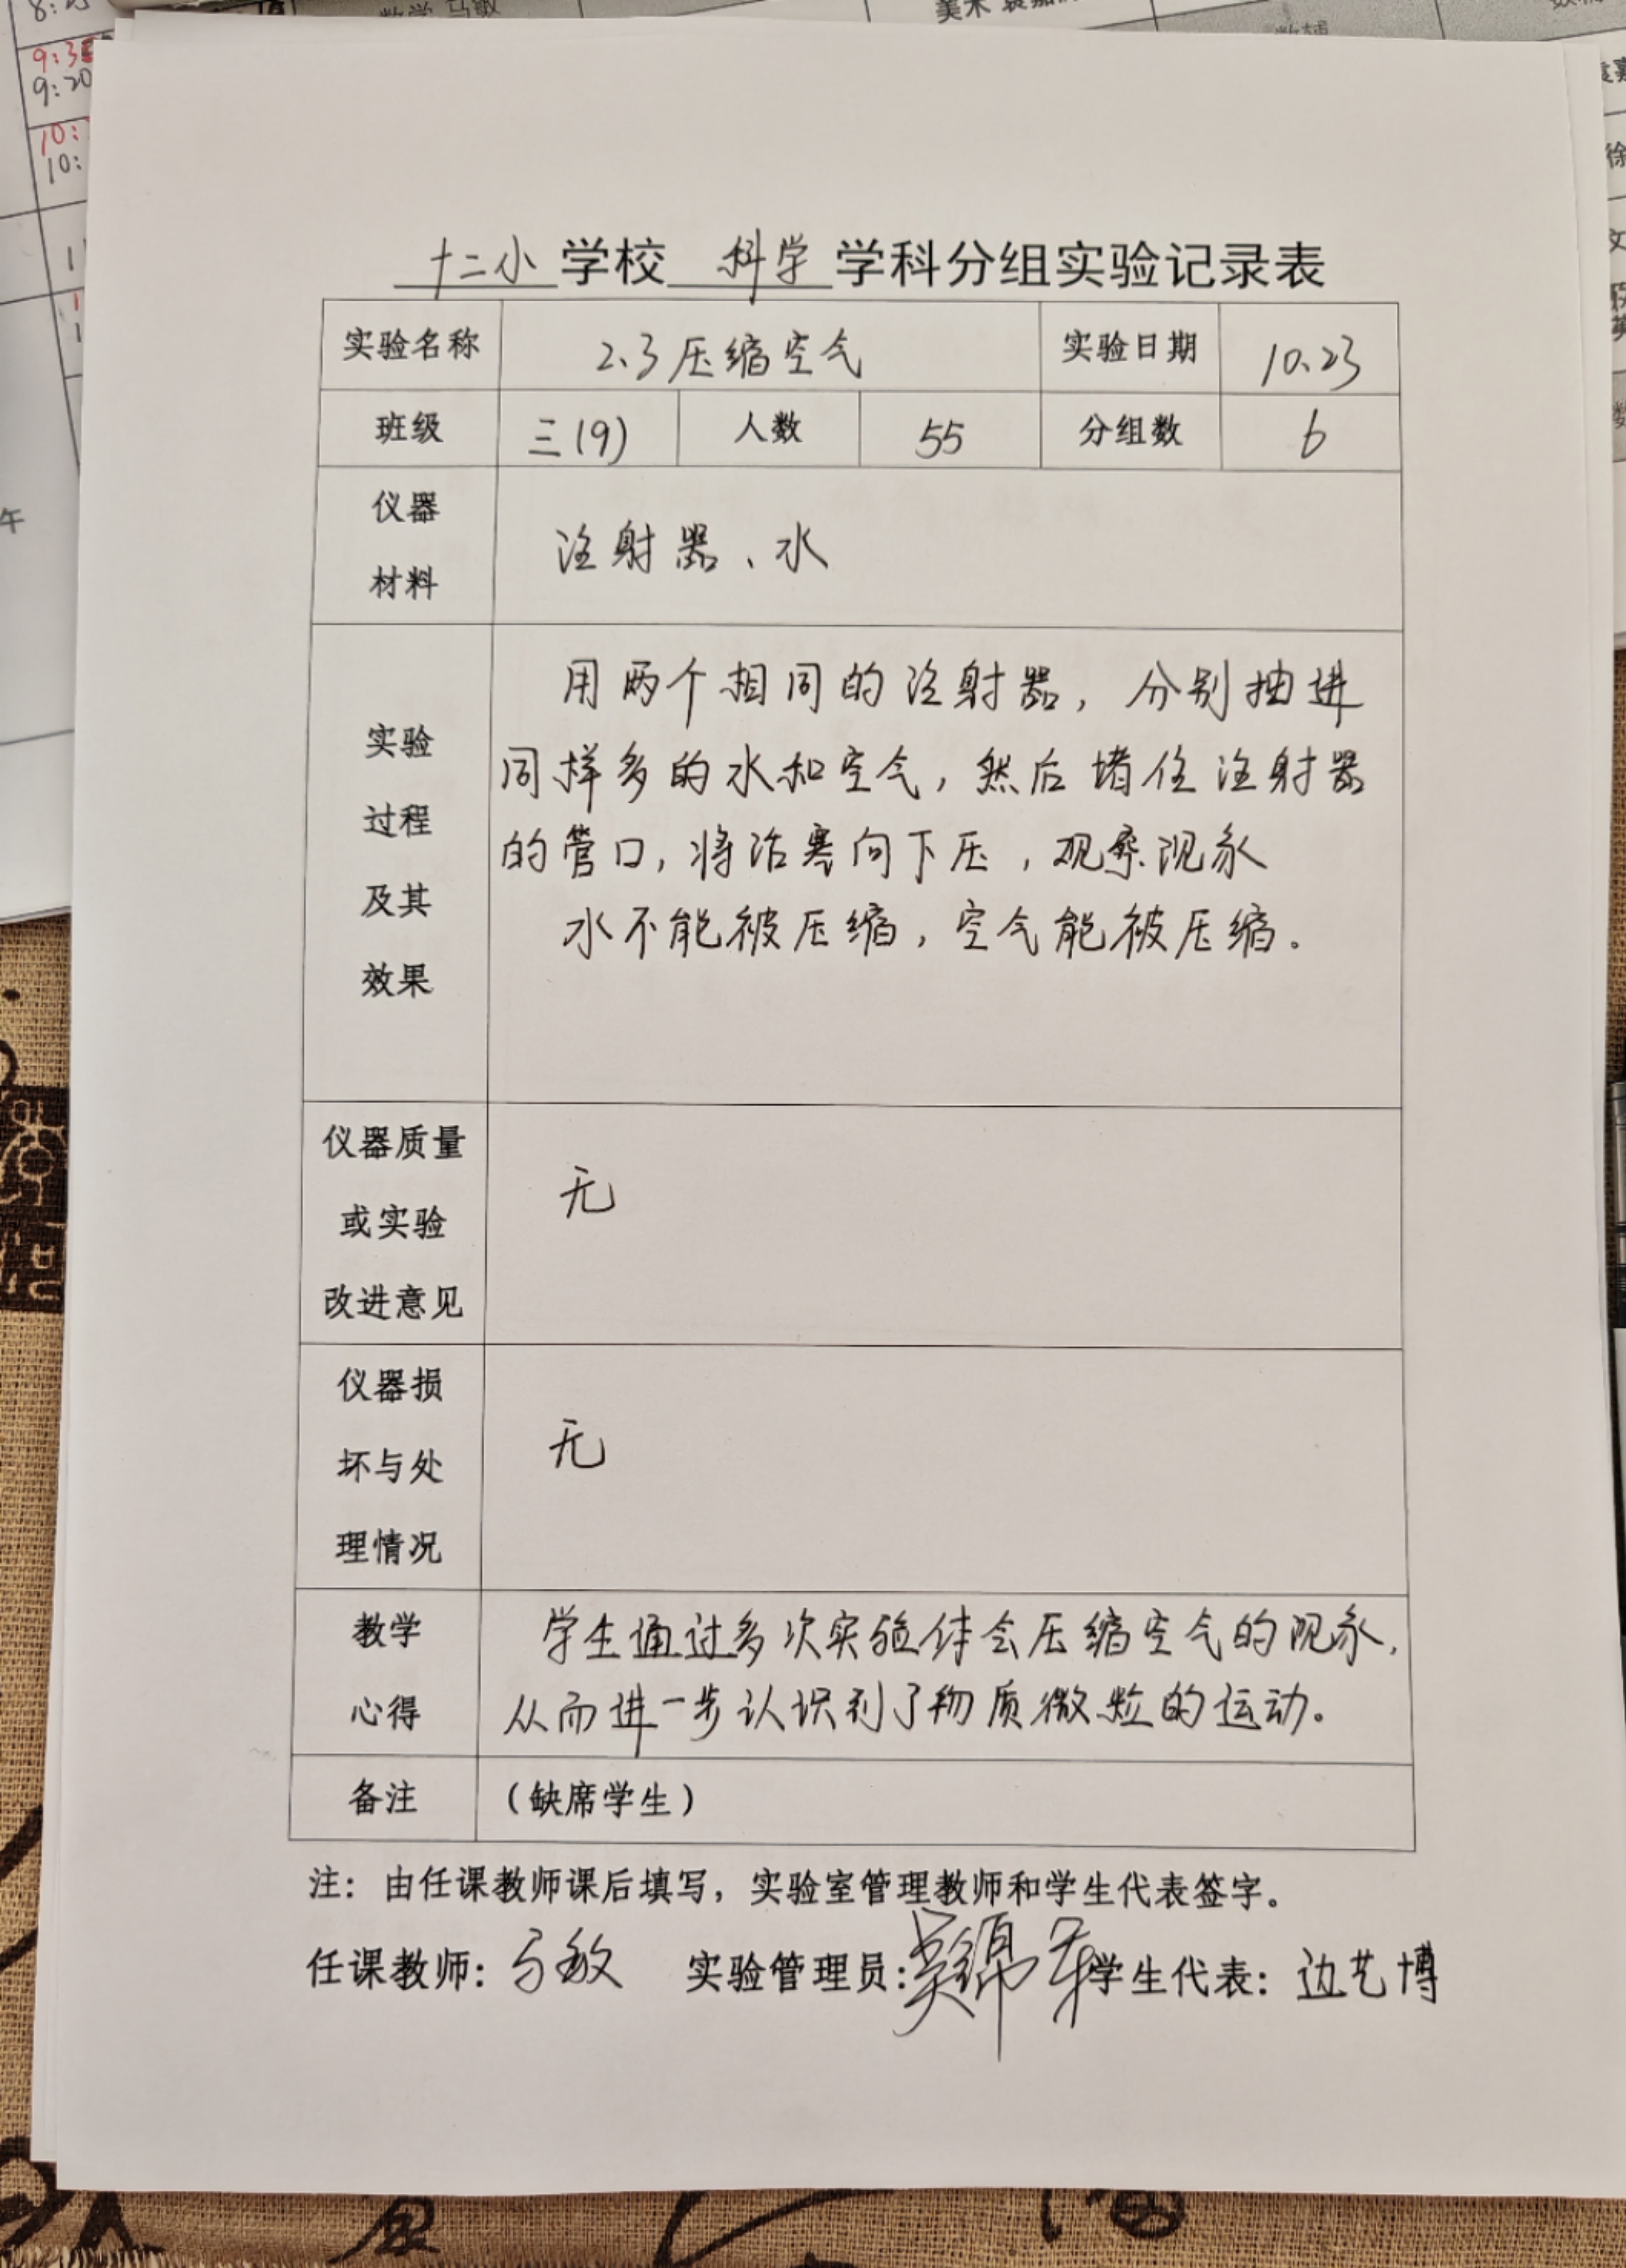 8:
数学 马敏
美术
9:3
9:20
10:
10:
徐
文
午
十二小 学校 科学 学科分组实验记录表
实验名称 2.3压缩空气 实验日期 10.23
班级 三(9) 人数 55 分组数 6
仪器
材料
注射器、水
实验
过程
及其
效果
用两个相同的注射器，分别抽进
同样多的水和空气，然后堵住注射器
的管口，将活塞向下压，观察现象
水不能被压缩，空气能被压缩。
仪器质量
或实验
改进意见
无
仪器损
坏与处
理情况
无
教学
心得
学生通过多次实验体会压缩空气的现象，
从而进一步认识到了物质微粒的运动。
备注 （缺席学生）
注：由任课教师课后填写，实验室管理教师和学生代表签字。
任课教师：马敏 实验管理员： 学生代表：边艺博